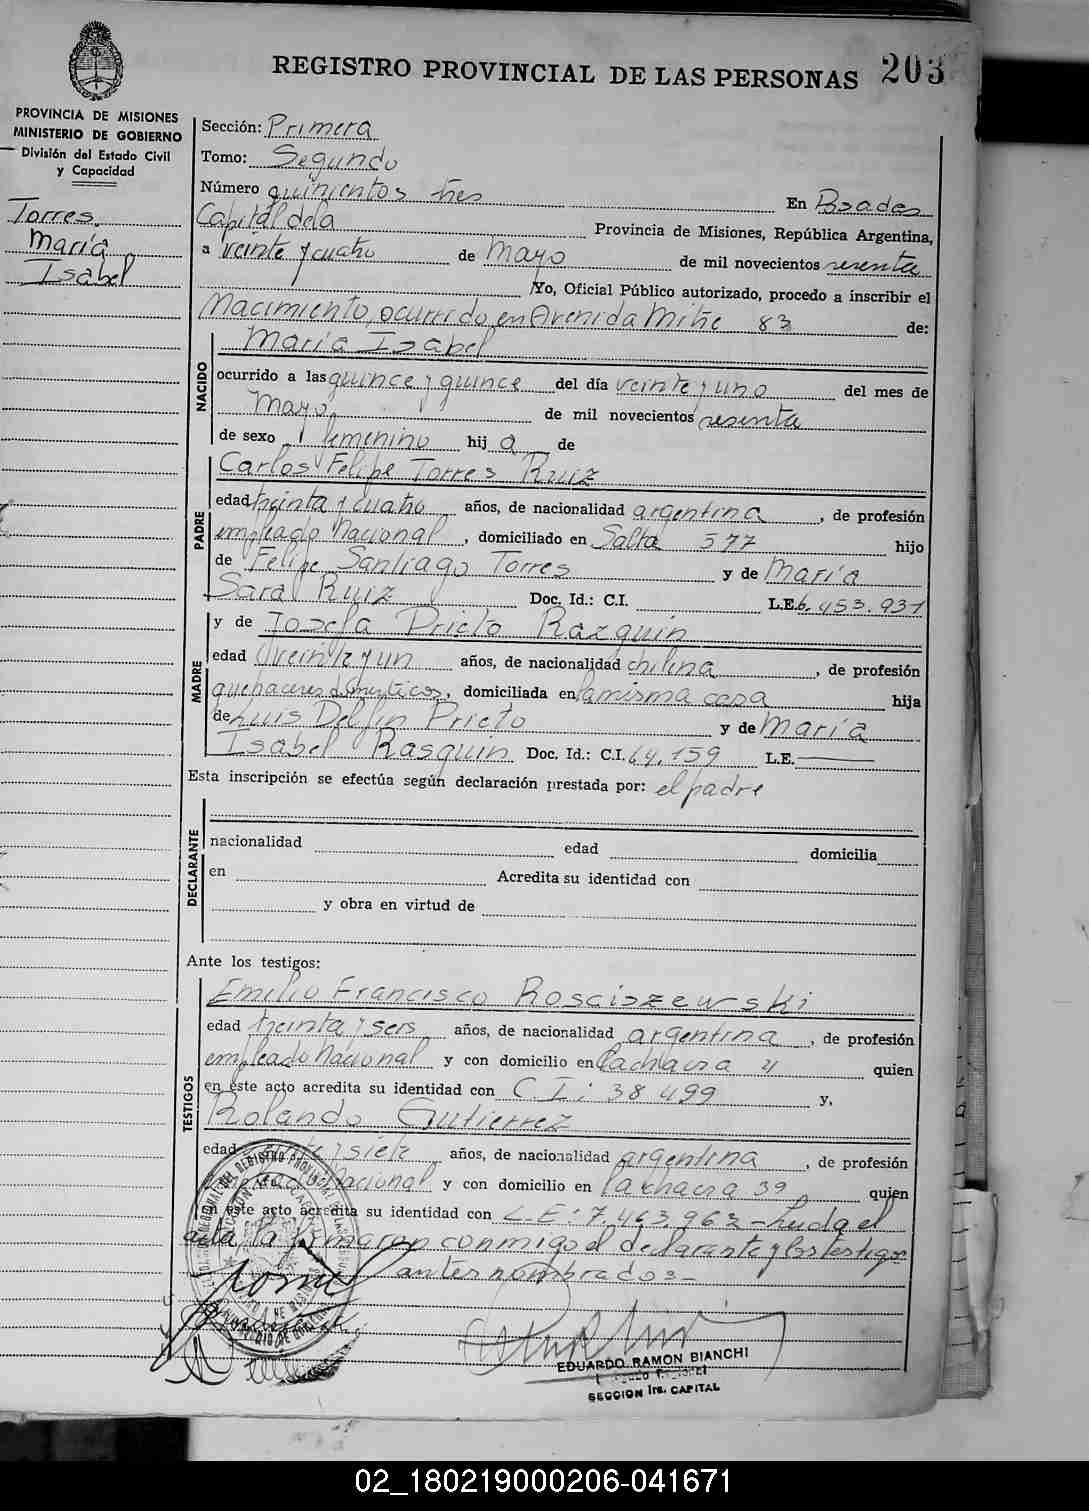 REGISTRO PROVINCIAL DE LAS PERSONAS 203
PROVINCIA DE MISIONES
MINISTERIO DE GOBIERNO
División del Estado Civil
y Capacidad
Torres
María
Isabel
Sección: Primera
Tomo: Segundo
Número quinientos tres En Posadas
Capital de la Provincia de Misiones, República Argentina,
a veinte y cuatro de Mayo de mil novecientos sesenta
Yo, Oficial Público autorizado, procedo a inscribir el
Nacimiento, ocurrido en Avenida Mitre 83 de:
NACIDO
María Isabel
ocurrido a las quince y quince del día veinte y uno del mes de
Mayo de mil novecientos sesenta
de sexo femenino hij a de
PADRE
Carlos Felipe Torres Ruiz
edad treinta y cuatro años, de nacionalidad argentina, de profesión
empleado Nacional, domiciliado en Salta 577 hijo
de Felipe Santiago Torres y de María
Sara Ruiz Doc. Id.: C.I. L.E. 6.453.931
MADRE
y de Josefa Prieto Razquin
edad veinte y un años, de nacionalidad chilena, de profesión
quehaceres domesticos, domiciliada en la misma casa hija
de Luis Delfin Prieto y de María
Isabel Rasquin Doc. Id.: C.I. 64.159 L.E.
Esta inscripción se efectúa según declaración prestada por: el padre
DECLARANTE
nacionalidad edad domicilia
en Acredita su identidad con
y obra en virtud de
Ante los testigos:
TESTIGOS
Emilio Francisco Rosciszewski
edad treinta y seis años, de nacionalidad argentina, de profesión
empleado Nacional y con domicilio en la chacra 4 quien
en este acto acredita su identidad con C.I: 38499 y,
Rolando Gutierrez
edad y siete años, de nacionalidad argentina, de profesión
Nacional y con domicilio en la chacra 39 quien
en este acto acredita su identidad con L.E: 7.463.963 - Leida el
acta la firmaron conmigo el declarante y los testigos
antes nombrados -
EDUARDO RAMON BIANCHI
SECCION 1ra. CAPITAL
02_180219000206-041671